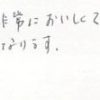 非常においしくて
なります。